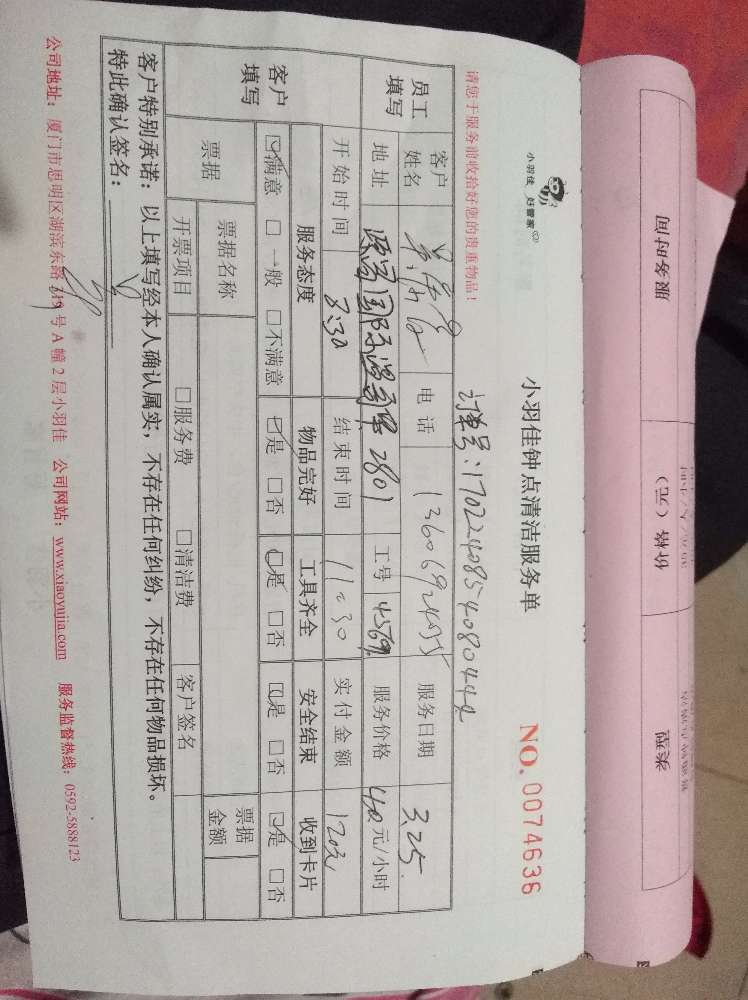 小羽佳 好管家
小羽佳钟点清洁服务单
NO. 0074636
订单号:17022408540804442
请您于服务前收拾好您的贵重物品!
员工填写
客户姓名
电话
服务日期 3.25.
地址
2801
工号
服务价格 40元/小时
开始时间 8:30
结束时间 11:30
实付金额 120元
客户填写
服务态度 物品完好 工具齐全 安全结束 收到卡片
☑满意 □一般 □不满意 ☑是 □否 ☑是 □否 ☑是 □否 ☑是 □否
票据
票据名称
票据金额
开票项目
□服务费 □清洁费
客户签名
客户特别承诺:以上填写经本人确认属实,不存在任何纠纷,不存在任何物品损坏。
特此确认签名:
公司地址:厦门市思明区湖滨东路319号A幢2层小羽佳 公司网站:www.xiaoyujia.com 服务监督热线:0592-5888123
服务时间
价格(元)
类型